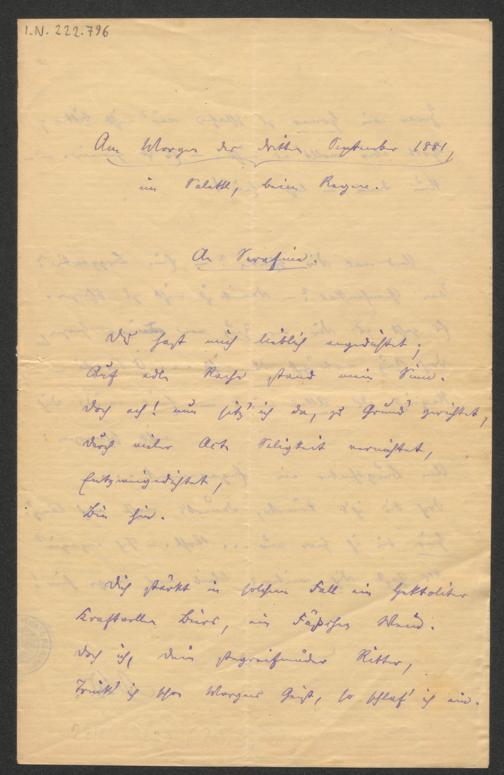 I.N. 222.796
Am Morgen des dritten September 1881,
im Salettl, beim Regen.
An Serafine.
Du hast mich lieblich angedichtet;
Auf edle Rache stand mein Sinn.
Doch ach! nun sitz' ich da, zu Grund' gerichtet,
Durch vieler Akte Seligkeit vernichtet,
Entzweigedichtet,
Bin hin.
Dich stärkt in solchem Fall ein Hektoliter
Kraftvollen Biers, ein Fäßchen Wein.
Doch ich, dein stegreifmüder Ritter,
Trink' ich schon Morgens Geist, so schlaf' ich ein.